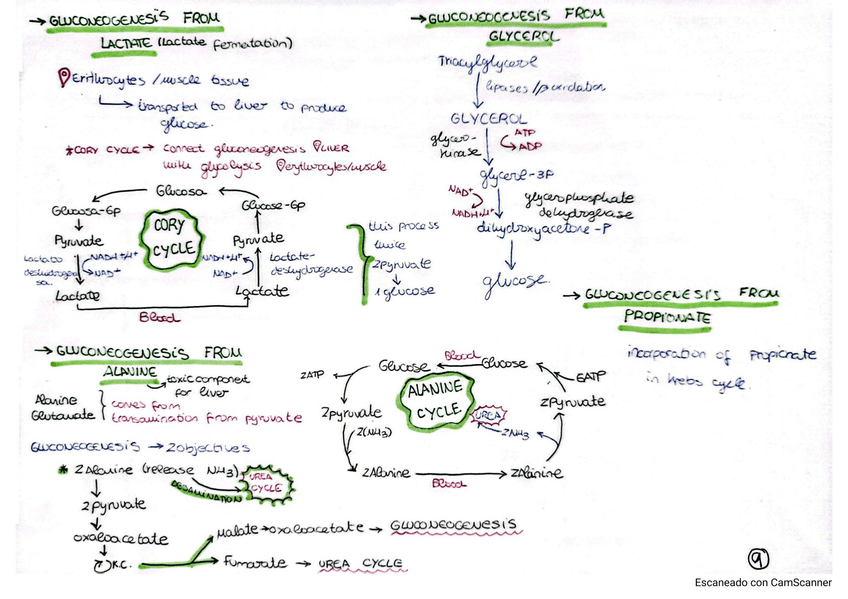 → GLUCONEOGENESIS FROM
LACTATE (Lactate fermetation)
Erithrocytes /muscle tissue
↳ transported to liver to produce
glucose.
*CORY CYCLE → connect gluconeogenesis LIVER
with glycolysis erythrocytes/muscle
Glucosa
Glucosa-6p
Glucose-6p
CORY
CYCLE
Pyruvate
Pyruvate
Lactato
deshidrogena
sa.
NADH+H⁺
NAD⁺
NADH+H⁺
NAD⁺
Lactate-
deshydrogerase
Lactate
Lactate
Blood
this process
twice
2pyruvate
↓
1 glucose
→ GLUCONEOGENESIS FROM
GLYCEROL
Triacylglycerol
lipases/β oxidation
GLYCEROL
glycero-
kinase
ATP
ADP
glycerol-3P
NAD⁺
NADH+H⁺
glycerophosphate
dehydrogerase
dihydroxyacetone-P
glucose.
→ GLUCONEOGENESIS FROM
PROPIONATE
incorporation of propionate
in krebs cycle.
→ GLUCONEOGENESIS FROM
ALANINE
toxic component
for liver
Alanine
Glutamate
comes from
transamination from pyruvate
GLUCONEOGENESIS → 2objectives
* 2Alanine (release NH₃)
DEAMINATION
UREA
CYCLE
2pyruvate
oxaloacetate
K.C.
Malate → oxaloacetate → GLUCONEOGENESIS
Fumarate → UREA CYCLE
Glucose
Blood
Glucose
2ATP
6ATP
ALANINE
CYCLE
2pyruvate
2pyruvate
UREA
2(NH₃)
2NH₃
2Alanine
2Alanine
Blood
9
Escaneado con CamScanner